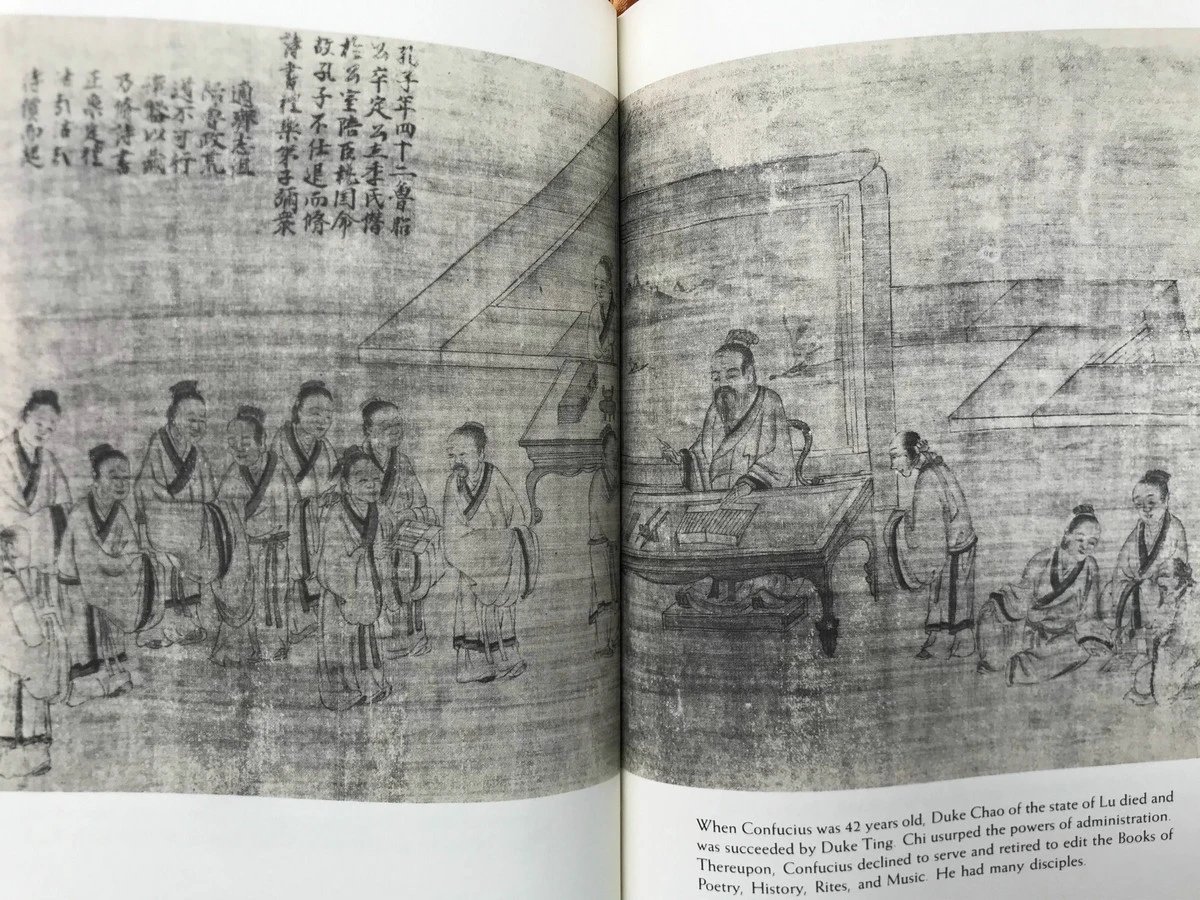 孔子年四十二魯昭
公卒定公立季氏僭
於公室陪臣執國命
故孔子不仕退而脩
詩書禮樂弟子彌衆
適齊志沮
魯政荒
道不可行
以藏
乃脩詩書
正樂定禮
待價而起
When Confucius was 42 years old, Duke Chao of the state of Lu died and
was succeeded by Duke Ting. Chi usurped the powers of administration.
Thereupon, Confucius declined to serve and retired to edit the Books of
Poetry, History, Rites, and Music. He had many disciples.